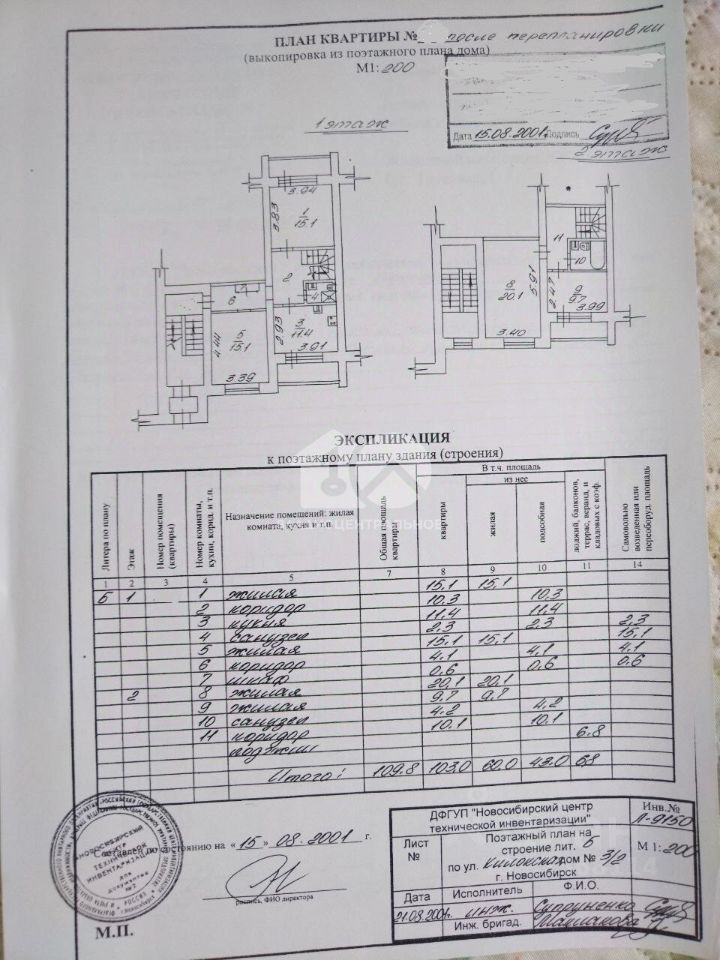 ПЛАН КВАРТИРЫ № после перепланировки
(выкопировка из поэтажного плана дома)
М1: 200
Дата 15.08.2001 Подпись
1 этаж
2 этаж
3.94
3.83
1
15.1
2
4
6
7
5
15.1
4.44
3.39
2.93
3
11.4
3.91
8
20.1
5.91
3.40
11
10
2.47
9
9.7
3.99
ЭКСПЛИКАЦИЯ
к поэтажному плану здания (строения)
Литера по плану
Этаж
Номер помещения (квартиры)
Номер комнаты, кухни, корид. и т.п.
Назначение помещений: жилая комната, кухня и т.п.
Общая площадь квартиры
В т.ч. площадь
квартиры
из нее
жилая
подсобная
лоджий, балконов, террас, веранд, и кладовых с коэф.
Самовольно возведенная или переоборуд. площадь
1 2 3 4 5 7 8 9 10 11 14
Б 1 1 жилая 15,1 15,1
2 коридор 10,3 10,3
3 кухня 11,4 11,4
4 санузел 2,3 2,3 2,3
5 жилая 15,1 15,1 15,1
6 коридор 4,1 4,1 4,1
7 шкаф 0,6 0,6 0,6
2 8 жилая 20,1 20,1
9 жилая 9,7 9,7
10 санузел 4,2 4,2
11 коридор 10,1 10,1
лоджии 6.8
Итого: 109.8 103,0 60,0 43,0 6,8
Составлен по состоянию на « 15 » 08. 2001 г.
подпись, ФИО директора
М.П.
НОВОСИБИРСКИЙ
ЦЕНТР
ТЕХНИЧЕСКОЙ
ИНВЕНТАРИЗАЦИИ
для
документов
№2
ДФГУП "Новосибирский центр
технической инвентаризации"
Инв.№
Л-9150
Лист
№
Поэтажный план на
строение лит. Б
по ул. дом № 3/2
г. Новосибирск
М 1: 200
Дата
Исполнитель
Ф.И.О.
21.08.2001
инж. Супруненко
Инж. бригад.